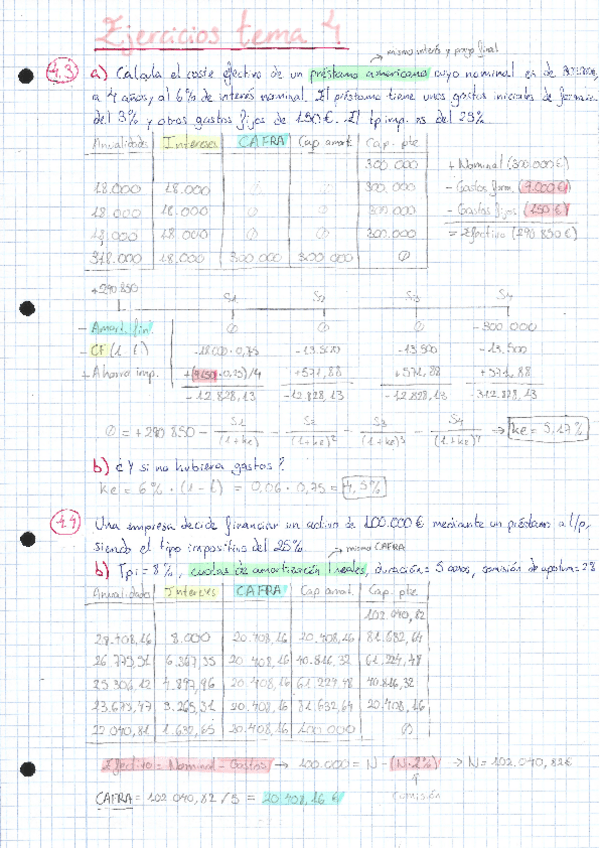 Ejercicios tema 4
mismo interés y pago final
4.3 a) Calcula el coste efectivo de un préstamo americano cuyo nominal es de 300.000€,
a 4 años, al 6% de interés nominal. El préstamo tiene unos gastos iniciales de formali
del 3% y otros gastos fijos de 150€. El tpimp. es del 25%
Anualidades Interese CAFRA Cap amort Cap. pte
300.000 + Nominal (300.000€)
18.000 18.000 ∅ ∅ 300.000 - Gastos form. (9.000€)
18.000 18.000 ∅ ∅ 300.000 - Gastos fijos (150€)
18.000 18.000 ∅ ∅ 300.000 = Efectivo (290.850€)
318.000 18.000 300.000 300.000 ∅
+290.850 S1 S2 S3 S4
- Amort. fin. ∅ ∅ ∅ -300.000
- CF (1-t) -18.000·0,75 -13.500 -13.500 -13.500
+ Ahorro imp. +(9.150·0,25)/4 +571,88 +571,88 +571,88
-12.928,13 -12.928,13 -12.928,13 -312.928,13
0 = +290.850 - S1/(1+ke) - S2/(1+ke)² - S3/(1+ke)³ - S4/(1+ke)⁴ → ke = 5,17%
b) ¿Y si no hubiera gastos?
ke = 6% · (1-t) = 0,06 · 0,75 = 4,5%
4.4 Una empresa decide financiar un activo de 100.000€ mediante un préstamo a l/p,
siendo el tipo impositivo del 25%.
mismo CAFRA
b) Tpi = 8%, cuotas de amortización lineales, duración = 5 años, comisión de apertura = 2%
Anualidades Intereses CAFRA Cap amort. Cap. pte
102.040,82
28.408,16 8.000 20.408,16 20.408,16 81.632,64
20.408,16 40.816,32 61.224,48
25.306,12 4.897,96 20.408,16 61.224,48 40.816,32
23.673,47 3.265,31 20.408,16 81.632,64 20.408,16
22.040,81 1.632,65 20.408,16 100.000 ∅
Efectivo = Nominal - Gastos → 100.000 = N - (N·2%) → N = 102.040,82€
CAFRA = 102.040,82 / 5 = 20.408,16€ comisión